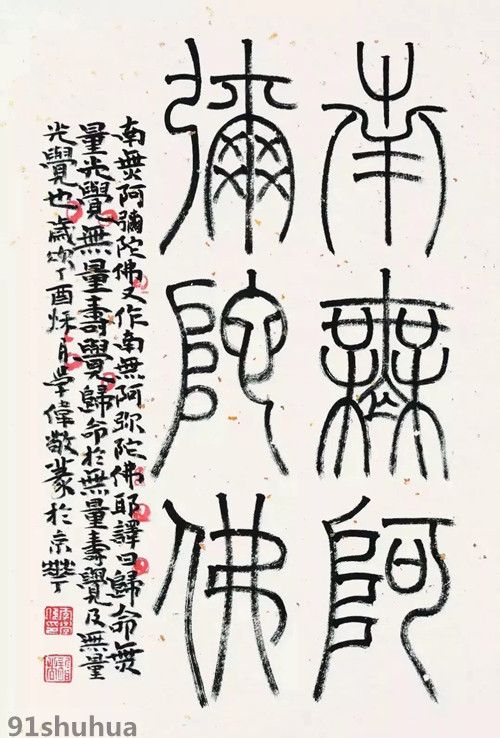 南無阿
彌陀佛
南無阿彌陀佛又作南無阿弥陀佛耶譯曰歸命無
量光覺無量壽覺歸命於無量壽覺及無量
光覺也歲次丁酉秋月學偉敬篆於京華
91shuhua